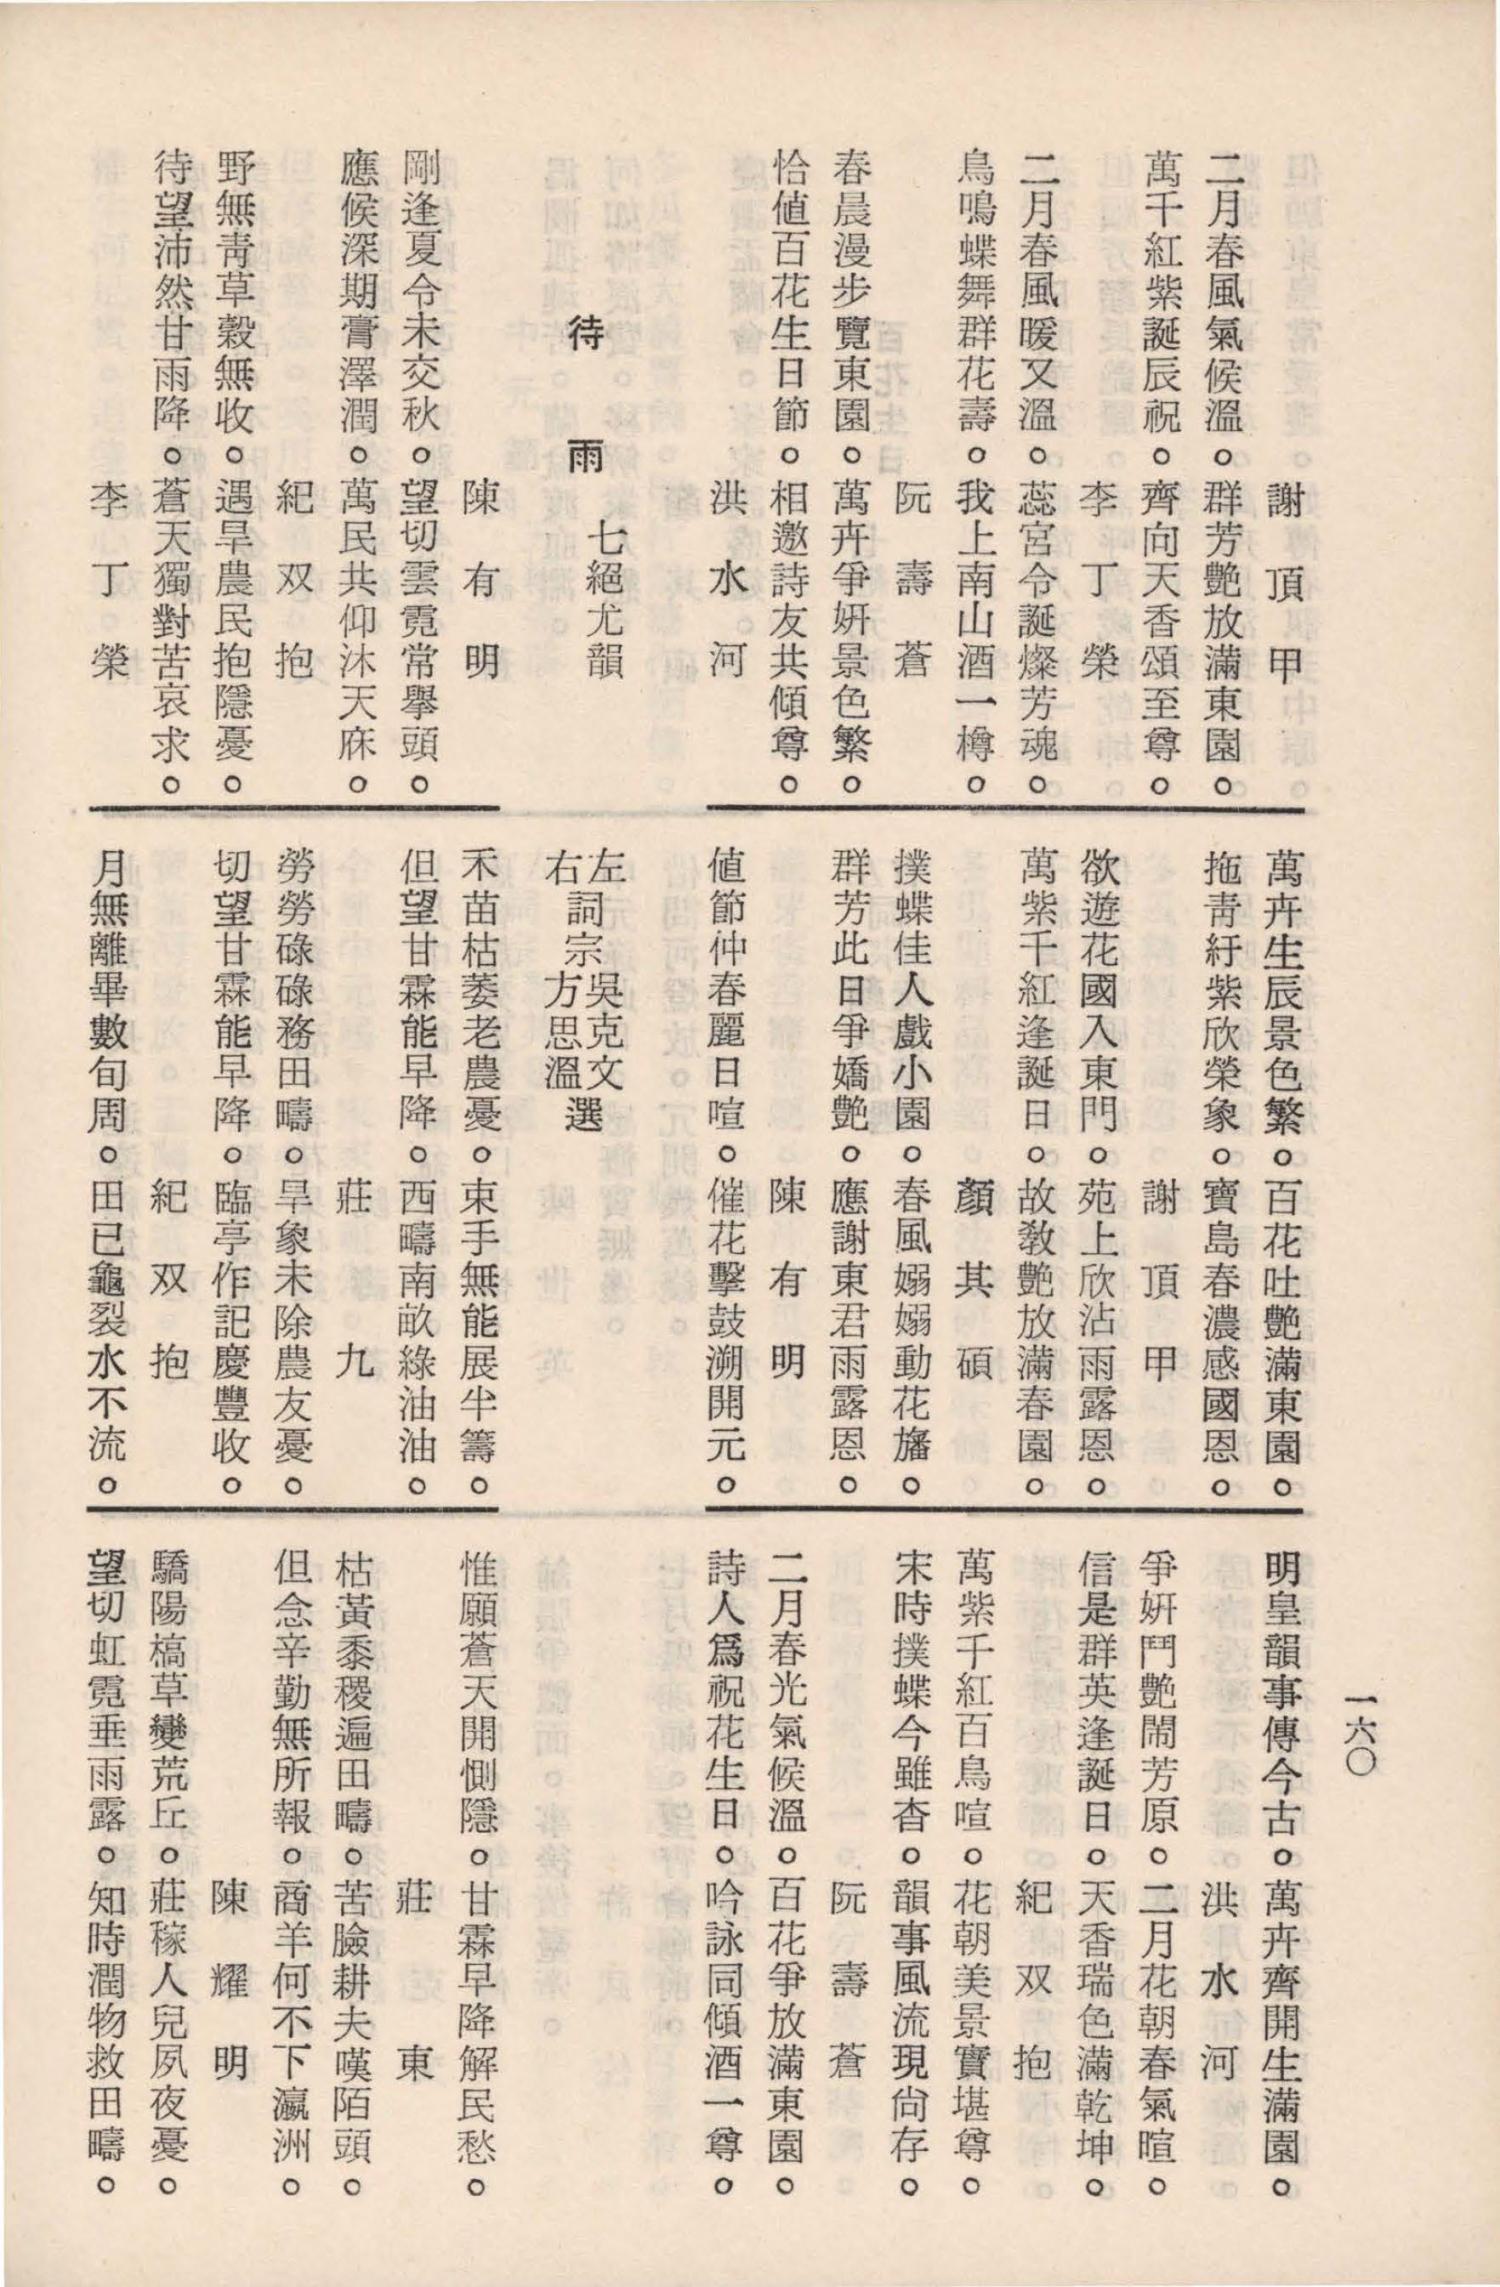 一六〇
謝頂甲
二月春風氣候溫。群芳艷放滿東園。
萬千紅紫誕辰祝。齊向天香頌至尊。
李丁榮
二月春風暖又溫。蕊宮令誕燦芳魂。
鳥鳴蝶舞群花壽。我上南山酒一樽。
阮壽蒼
春晨漫步覽東園。萬卉爭妍景色繁。
恰値百花生日節。相邀詩友共傾尊。
洪水河
萬卉生辰景色繁。百花吐艷滿東園。
拖靑紆紫欣榮象。寶島春濃感國恩。
謝頂甲
欲遊花國入東門。苑上欣沾雨露恩。
萬紫千紅逢誕日。故敎艷放滿春園。
顏其碩
撲蝶佳人戲小園。春風嫋嫋動花旛。
群芳此日爭嬌艷。應謝東君雨露恩。
陳有明
値節仲春麗日喧。催花擊鼓溯開元。
明皇韻事傳今古。萬卉齊開生滿園。
洪水河
爭妍鬥艷鬧芳原。二月花朝春氣暄。
信是群英逢誕日。天香瑞色滿乾坤。
紀双抱
萬紫千紅百鳥喧。花朝美景實堪尊。
宋時撲蝶今雖杳。韻事風流現尙存。
阮壽蒼
二月春光氣候溫。百花爭放滿東園。
詩人爲祝花生日。吟詠同傾酒一尊。
待雨
七絕尤韻
左詞宗吳克文選
右詞宗方思溫選
陳有明
剛逢夏令未交秋。望切雲霓常擧頭。
應候深期膏澤潤。萬民共仰沐天庥。
紀双抱
野無靑草穀無收。遇旱農民抱隱憂。
待望沛然甘雨降。蒼天獨對苦哀求。
李丁榮
禾苗枯萎老農憂。束手無能展半籌。
但望甘霖能早降。西疇南畝綠油油。
莊九
勞勞碌碌務田疇。旱象未除農友憂。
切望甘霖能早降。臨亭作記慶豐收。
紀双抱
月無離畢數旬周。田已龜裂水不流。
惟願蒼天開惻隱。甘霖早降解民愁。
莊東
枯黃黍稷遍田疇。苦臉耕夫嘆陌頭。
但念辛勤無所報。商羊何不下瀛洲。
陳耀明
驕陽槁草變荒丘。莊稼人兒夙夜憂。
望切虹霓垂雨露。知時潤物救田疇。